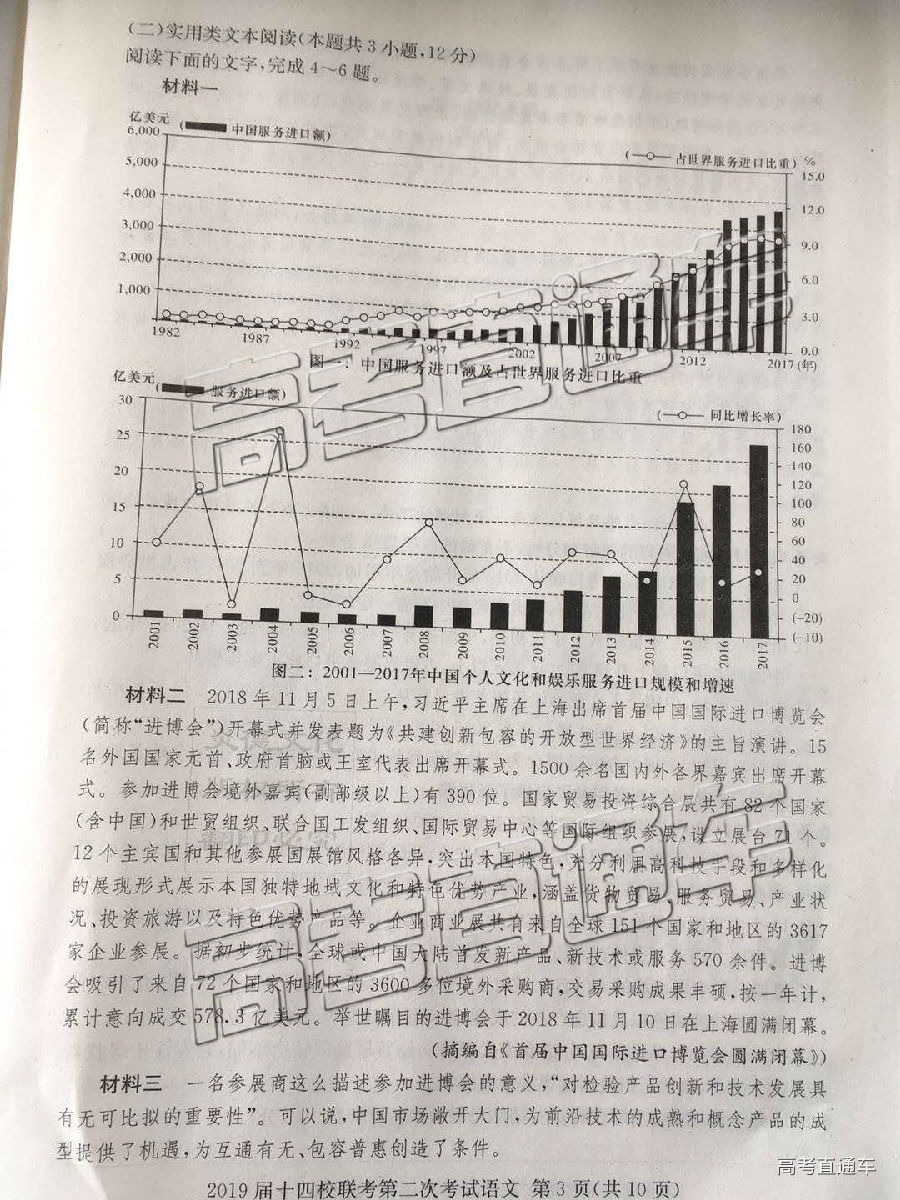 (二)实用类文本阅读(本题共3小题,12分)
阅读下面的文字,完成4～6题。
材料一
亿美元 (中国服务进口额) (占世界服务进口比重) %
6,000
5,000
4,000
3,000
2,000
1,000
15.0
12.0
9.0
6.0
3.0
0.0
1982 1987 1992 1997 2002 2007 2012 2017 (年)
图一:中国服务进口额及占世界服务进口比重
亿美元 (服务进口额) (同比增长率)
30
25
20
15
10
5
0
180
160
140
120
100
80
60
40
20
0
(-20)
(-10)
2001 2002 2003 2004 2005 2006 2007 2008 2009 2010 2011 2012 2013 2014 2015 2016 2017
图二:2001—2017年中国个人文化和娱乐服务进口规模和增速
材料二 2018年11月5日上午,习近平主席在上海出席首届中国国际进口博览会
(简称“进博会”)开幕式并发表题为《共建创新包容的开放型世界经济》的主旨演讲。15
名外国国家元首、政府首脑或王室代表出席开幕式。1500余名国内外各界嘉宾出席开幕
式。参加进博会境外嘉宾(副部级以上)有390位。国家贸易投资综合展共有82个国家
(含中国)和世贸组织、联合国工发组织、国际贸易中心等国际组织参展,设立展台71个。
12个主宾国和其他参展国展馆风格各异,突出本国特色,充分利用高科技手段和多样化
的展现形式展示本国独特地域文化和特色优势产业,涵盖货物贸易、服务贸易、产业状
况、投资旅游以及特色优势产品等。企业商业展共有来自全球151个国家和地区的3617
家企业参展。据初步统计,全球或中国大陆首发新产品、新技术或服务570余件。进博
会吸引了来自72个国家和地区的3600多位境外采购商,交易采购成果丰硕,按一年计,
累计意向成交578.3亿美元。举世瞩目的进博会于2018年11月10日在上海圆满闭幕。
(摘编自《首届中国国际进口博览会圆满闭幕》)
材料三 一名参展商这么描述参加进博会的意义,“对检验产品创新和技术发展具
有无可比拟的重要性”。可以说,中国市场敞开大门,为前沿技术的成熟和概念产品的成
型提供了机遇,为互通有无、包容普惠创造了条件。
2019届十四校联考第二次考试语文 第3页(共10页)
高考直通车
高考直通车
高考直通车